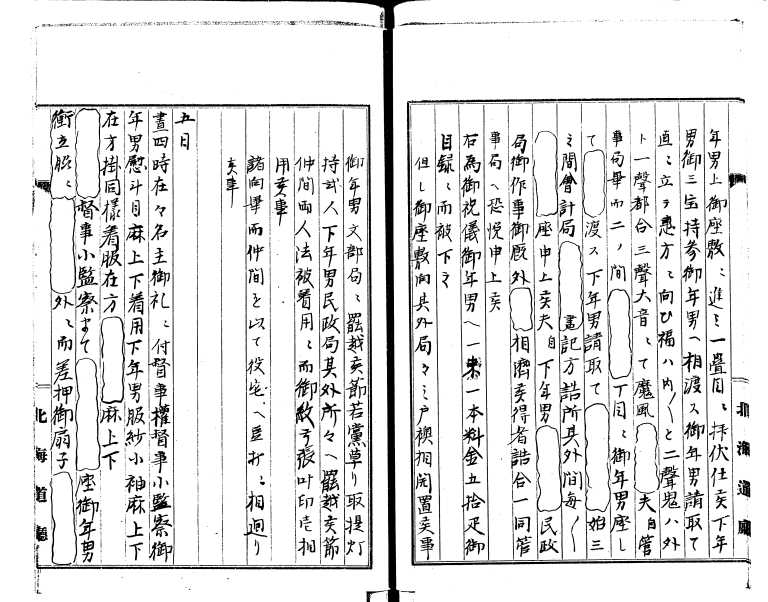 年男上御座敷ニ進ミ一畳目ニ拝伏仕亥下年
男御三宝持参御年男ヘ相渡ス御年男請取て
直ニ立ヲ恵方ニ向ひ福ハ内〱と二聲鬼ハ外
ト一聲都合三聲大音ニて魔風 夫自管
事局畢而二ノ間 丁目ニ御年男座し
て 渡ス下年男請取て 始三
之間會計局 書記方詰所其外間毎〱
座申上亥夫自下年男 民政
局御作事御厩外 相濟亥得者詰合一同管
事局ヘ恐悦申上亥
右為御祝儀御年男ヘ一 一本料金五拾疋御
目録ニ而被下之
但し御座敷向其外局々之戸襖相開置亥事
御年男文部局ニ罷越亥節若黨草り取提灯
持弐人下年男民政局其外所々ヘ罷越亥節
仲間両人法被着用ニ而御紋弓張叶印壱相
用亥事
諸向畢而仲間を以て役宅ヘ豆打ニ相廻り
亥事
五日
晝四時在々名主御礼ニ付督事權督事小監察御
年男慰斗目麻上下着用下年男服紗小袖麻上下
在方掛同様着服在方 麻上下
督事小監察まて 座御年男
衝立脇ニ 外ニ而差押御扇子
北海道廳
北海道廳